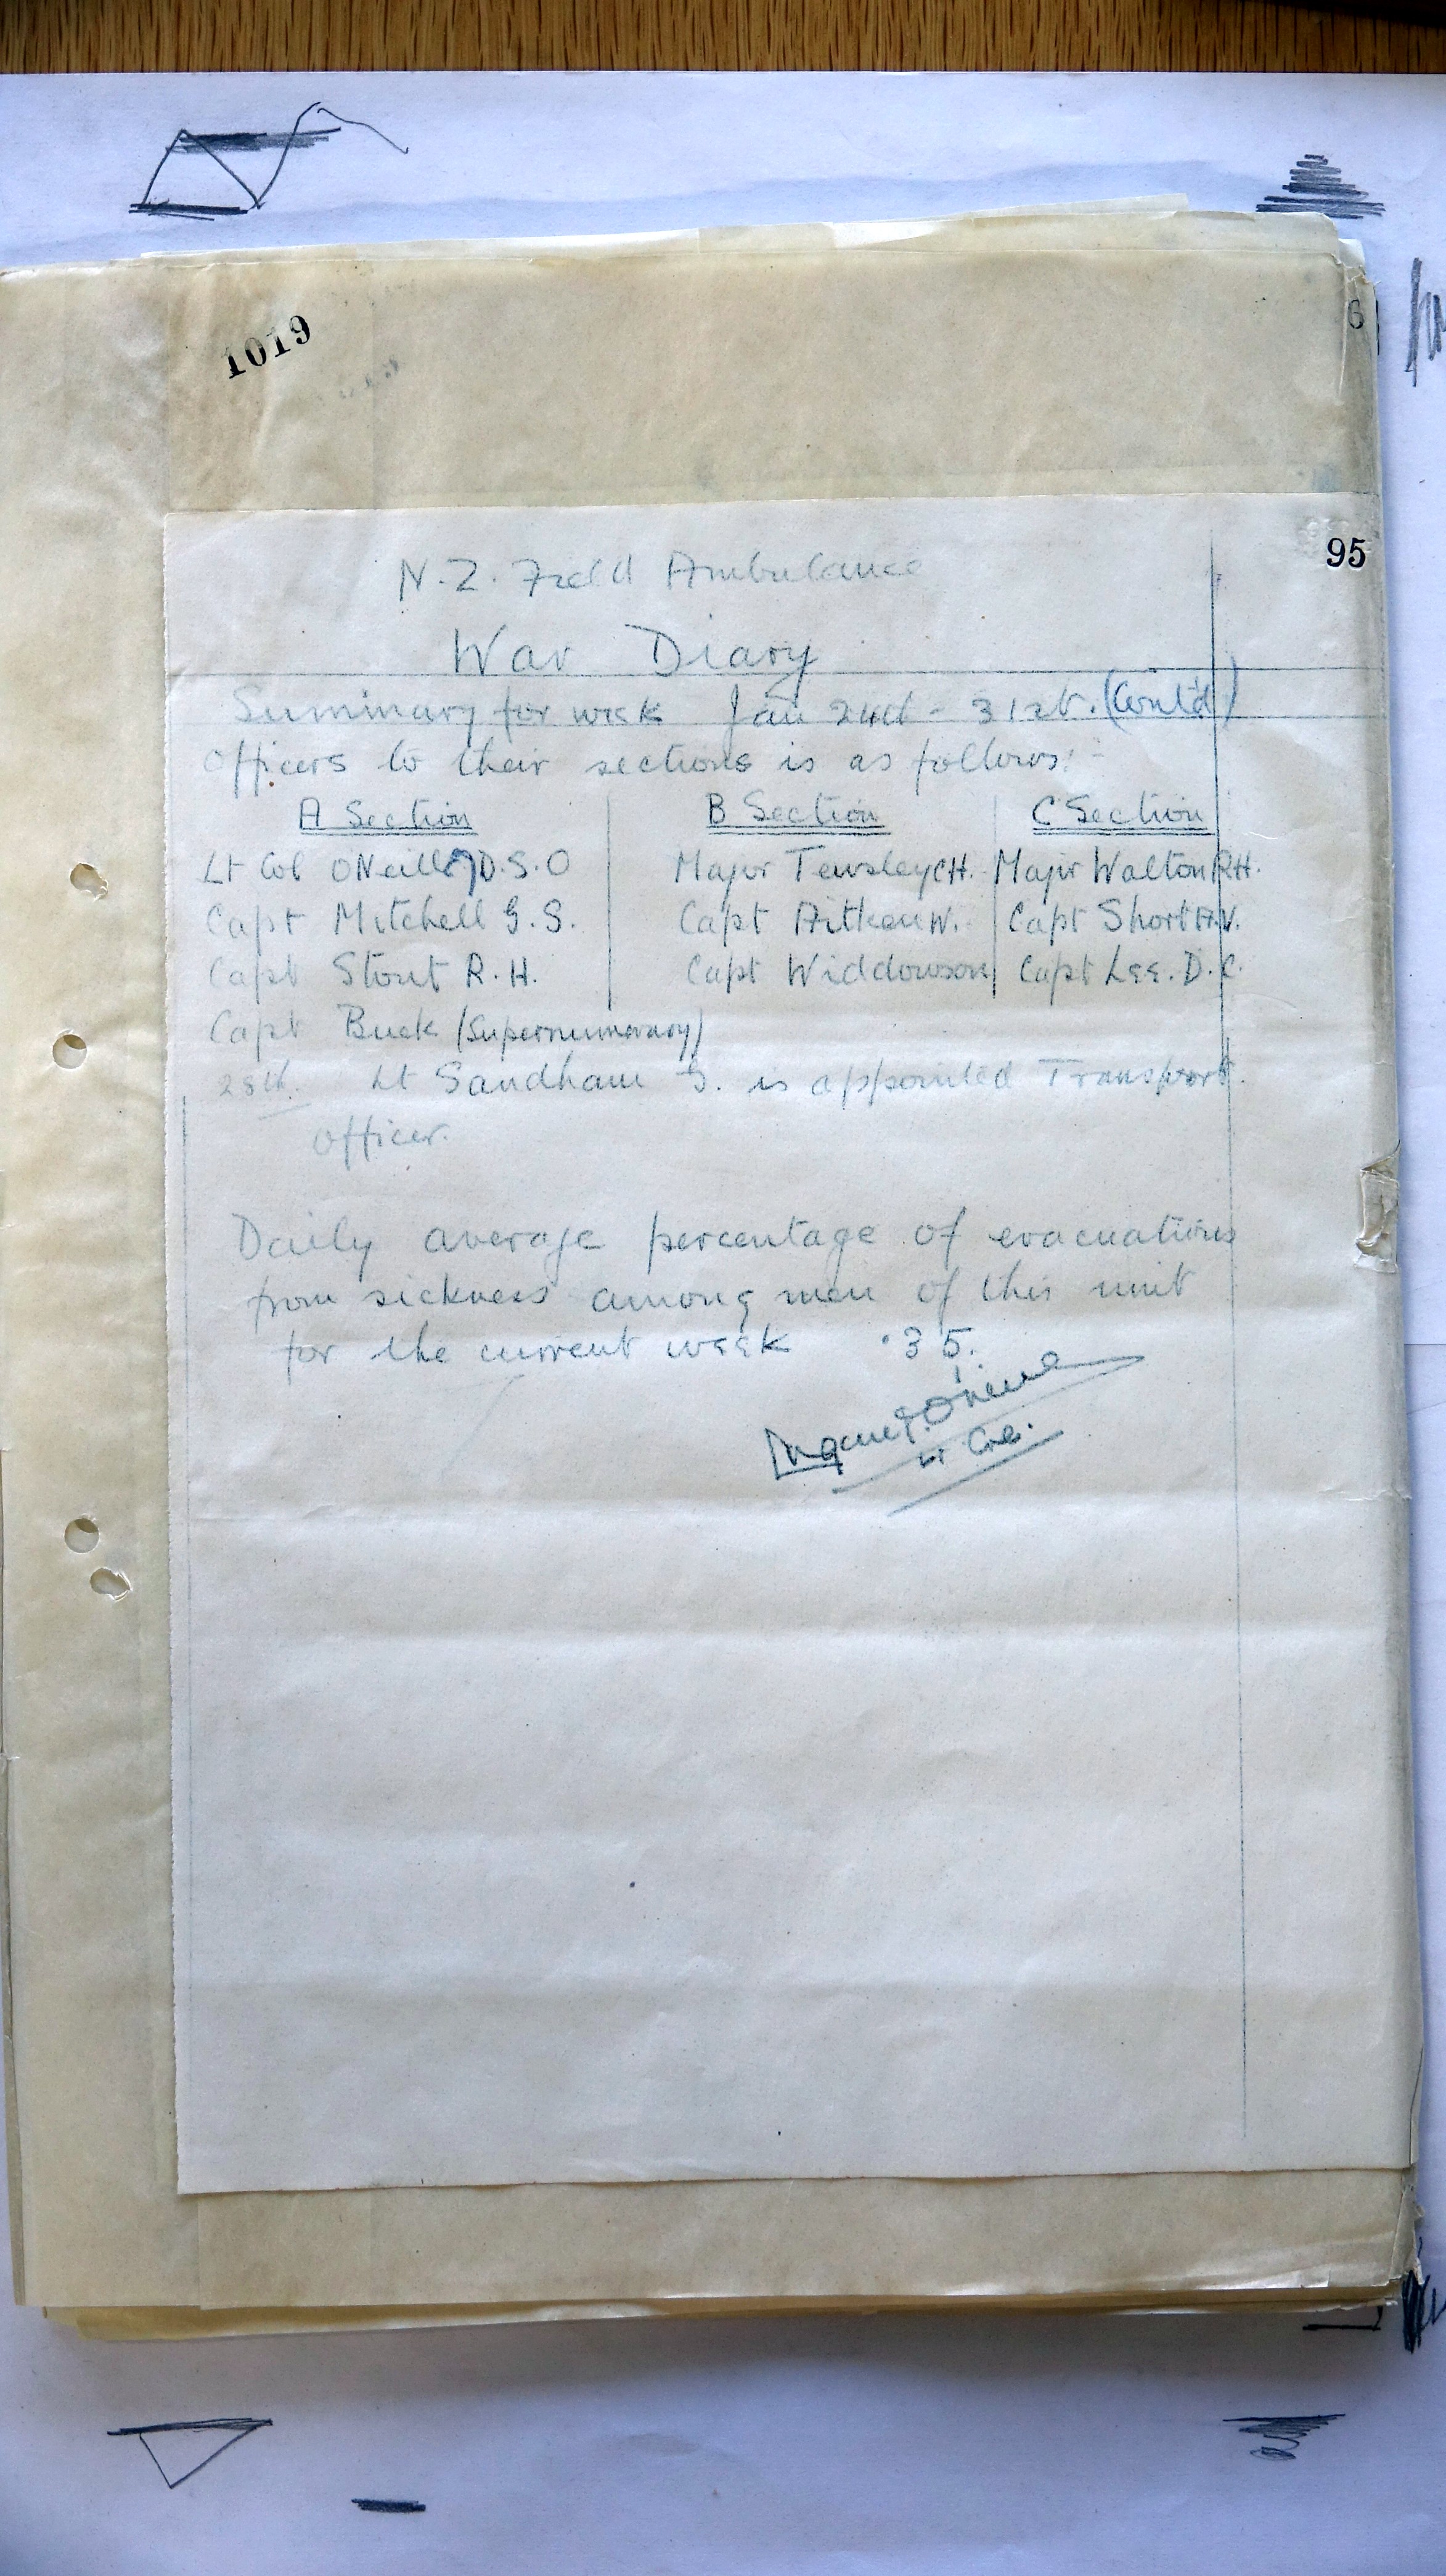 1019
6
95
N.Z. Field Ambulance
War Diary
Summary for week Jan 24th - 31st. (Cont'd)
Officers to their sections is as follows:-
A Section B Section C Section
Lt Col ONeill D.S.O Major Tewsley C.H. Major Walton R.H.
Capt Mitchell G.S. Capt Aitken W. Capt Short A.V.
Capt Stout R.H. Capt Widdowson Capt Lee. D.C.
Capt Buck (Supernumerary)
28th. Lt Sandham G. is appointed Transport
Officer.
Daily average percentage of evacuations
from sickness among men of this unit
for the current week .35.
Lt Col.